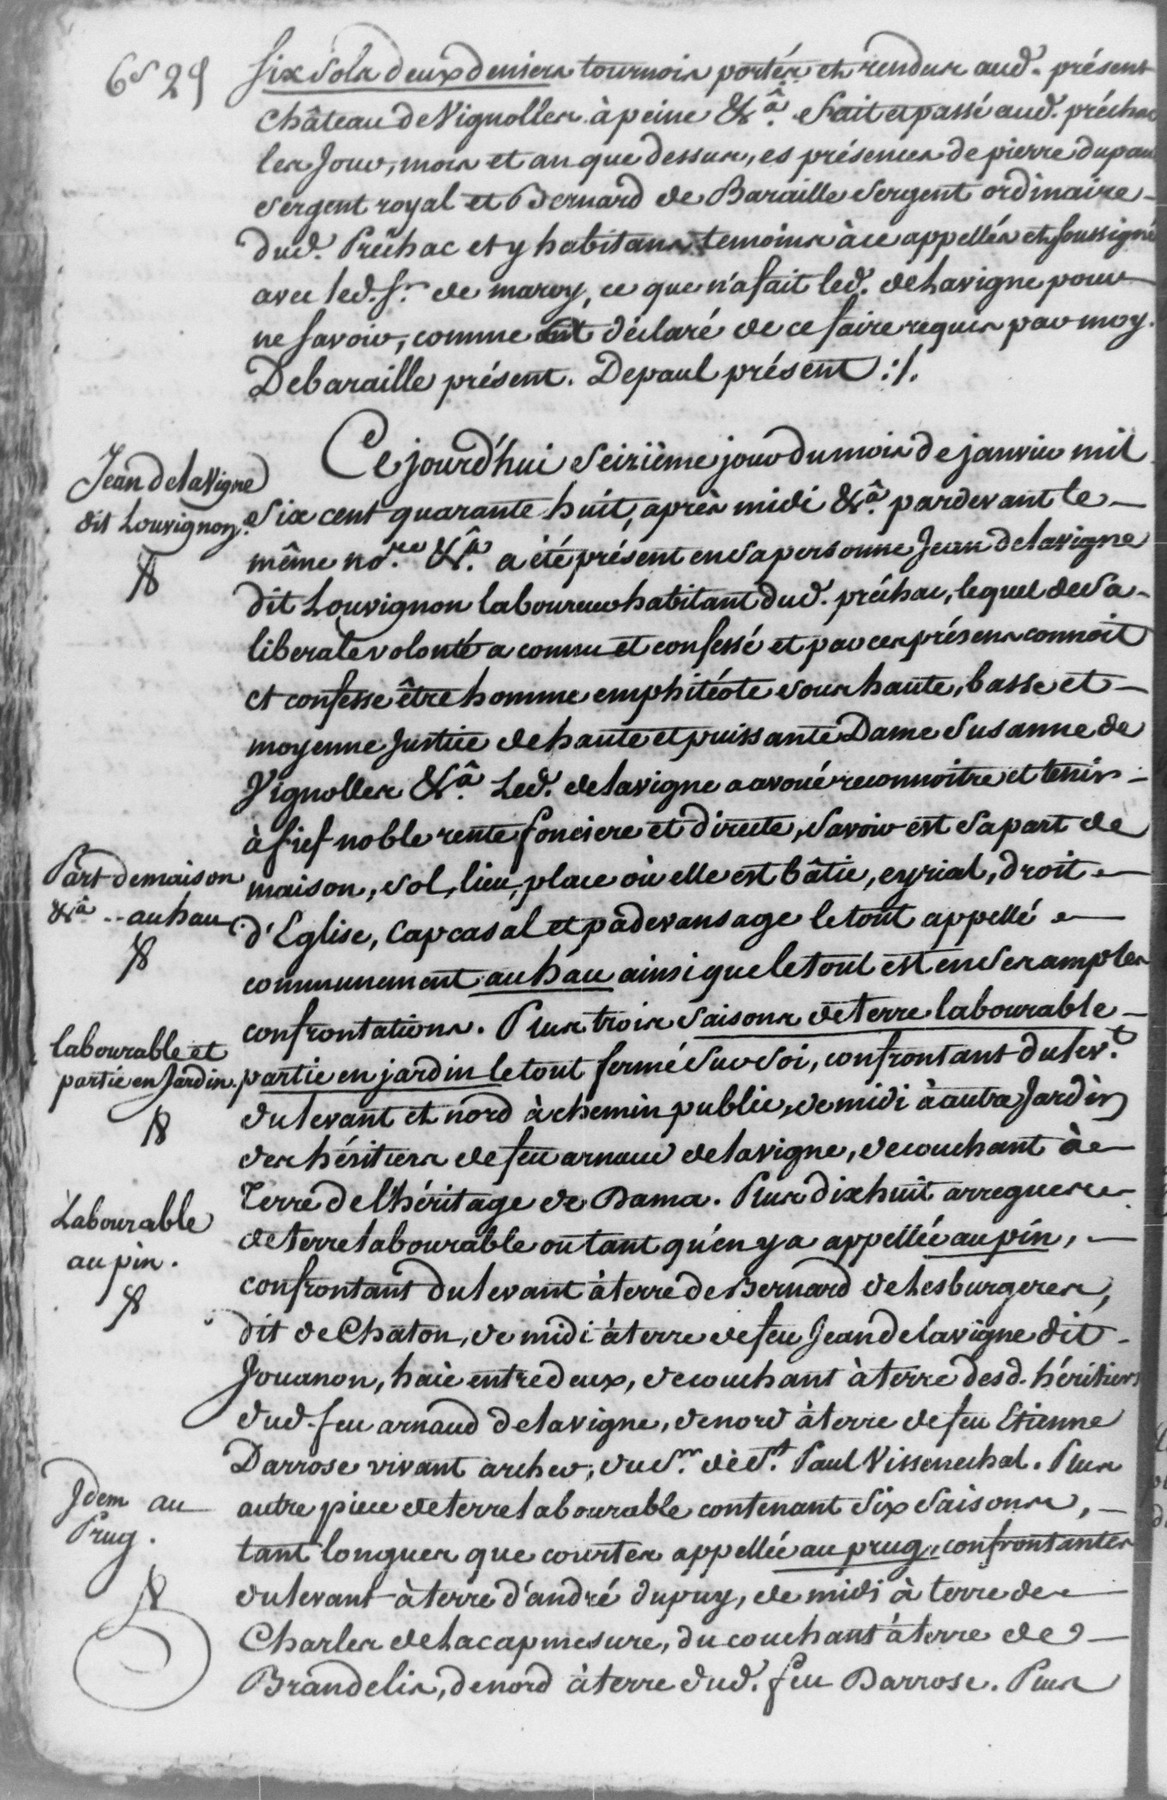 6s 2d
six sols deux deniers tournois portés et rendus aud. présent
château de Vignolles à peine &.ª fait et passé aud. préchac
les Jour, mois et an que dessus, es présences de pierre dupau
sergent royal et Bernard de Baraille sergent ordinaire
dud. Préchac et y habitans temoins à ce appellés et soussigné
avec led. s.r de marvy, ce que n'a fait led. delavigne pour
ne savoir, comme ont déclaré de ce faire requis par moy.
Debaraille présent. Depaul présent :/.
Jean delavigne
dit Louvignon
Ce jourd'hui seizième jour du mois de janvier mil
six cent quarante huit, après midi &ª. pardevant le
même no.re &ª. a été présent en sa personne Jean delavigne
dit Louvignon laboureur habitant dud. préchac, lequel de sa
liberale volonté a connu et confessé et par ces présens connoit
et confesse être homme emphitéote sous haute, basse et
moyenne Justice de haute et puissante Dame Susanne de
Vignolles &ª. Led. delavigne a avoué reconnoitre et tenir
à fief noble rente fonciere et directe, savoir est sa part de
Part de maison
&ª .. au hau
maison, sol, lieu, place où elle est bâtie, eyrial, droit
d'Eglise, capcasal et padevansage le tout appellé
communement au hau ainsi que le tout est en ses amples
confrontations. Plus trois saisons de terre labourable
labourable et
partie en Jardin.
partie en jardin le tout fermé sur soi, confrontant du lev.t
du levant et nord à chemin public, de midi à autre Jardin
des héritiers de feu arnaud delavigne, de couchant à
Terre de l'héritage de Dama. Plus dix huit arregues
Labourable
au pin.
de terre labourable ou tant qu'en y a appellée au pin,
confrontant du levant à terre de Bernard de Lesburgeres,
dit de Chaton, de midi à terre de feu Jean delavigne dit
Jouanon, haie entre deux, de couchant à terre desd. héritiers
dud. feu arnaud delavigne, de nord à terre de feu Etienne
Darrose vivant archer, du s.r de s.t Paul Vissenechal. Plus
Idem au
Prug.
autre piece de terre labourable contenant six saisons,
tant longues que courtes appellée au prug, confrontantes
du levant à terre d'andré dupuy, de midi à terre de
Charles de Lacapmesure, du couchant à terre de
Brandelis, de nord à terre dud. feu Darrose. Plus